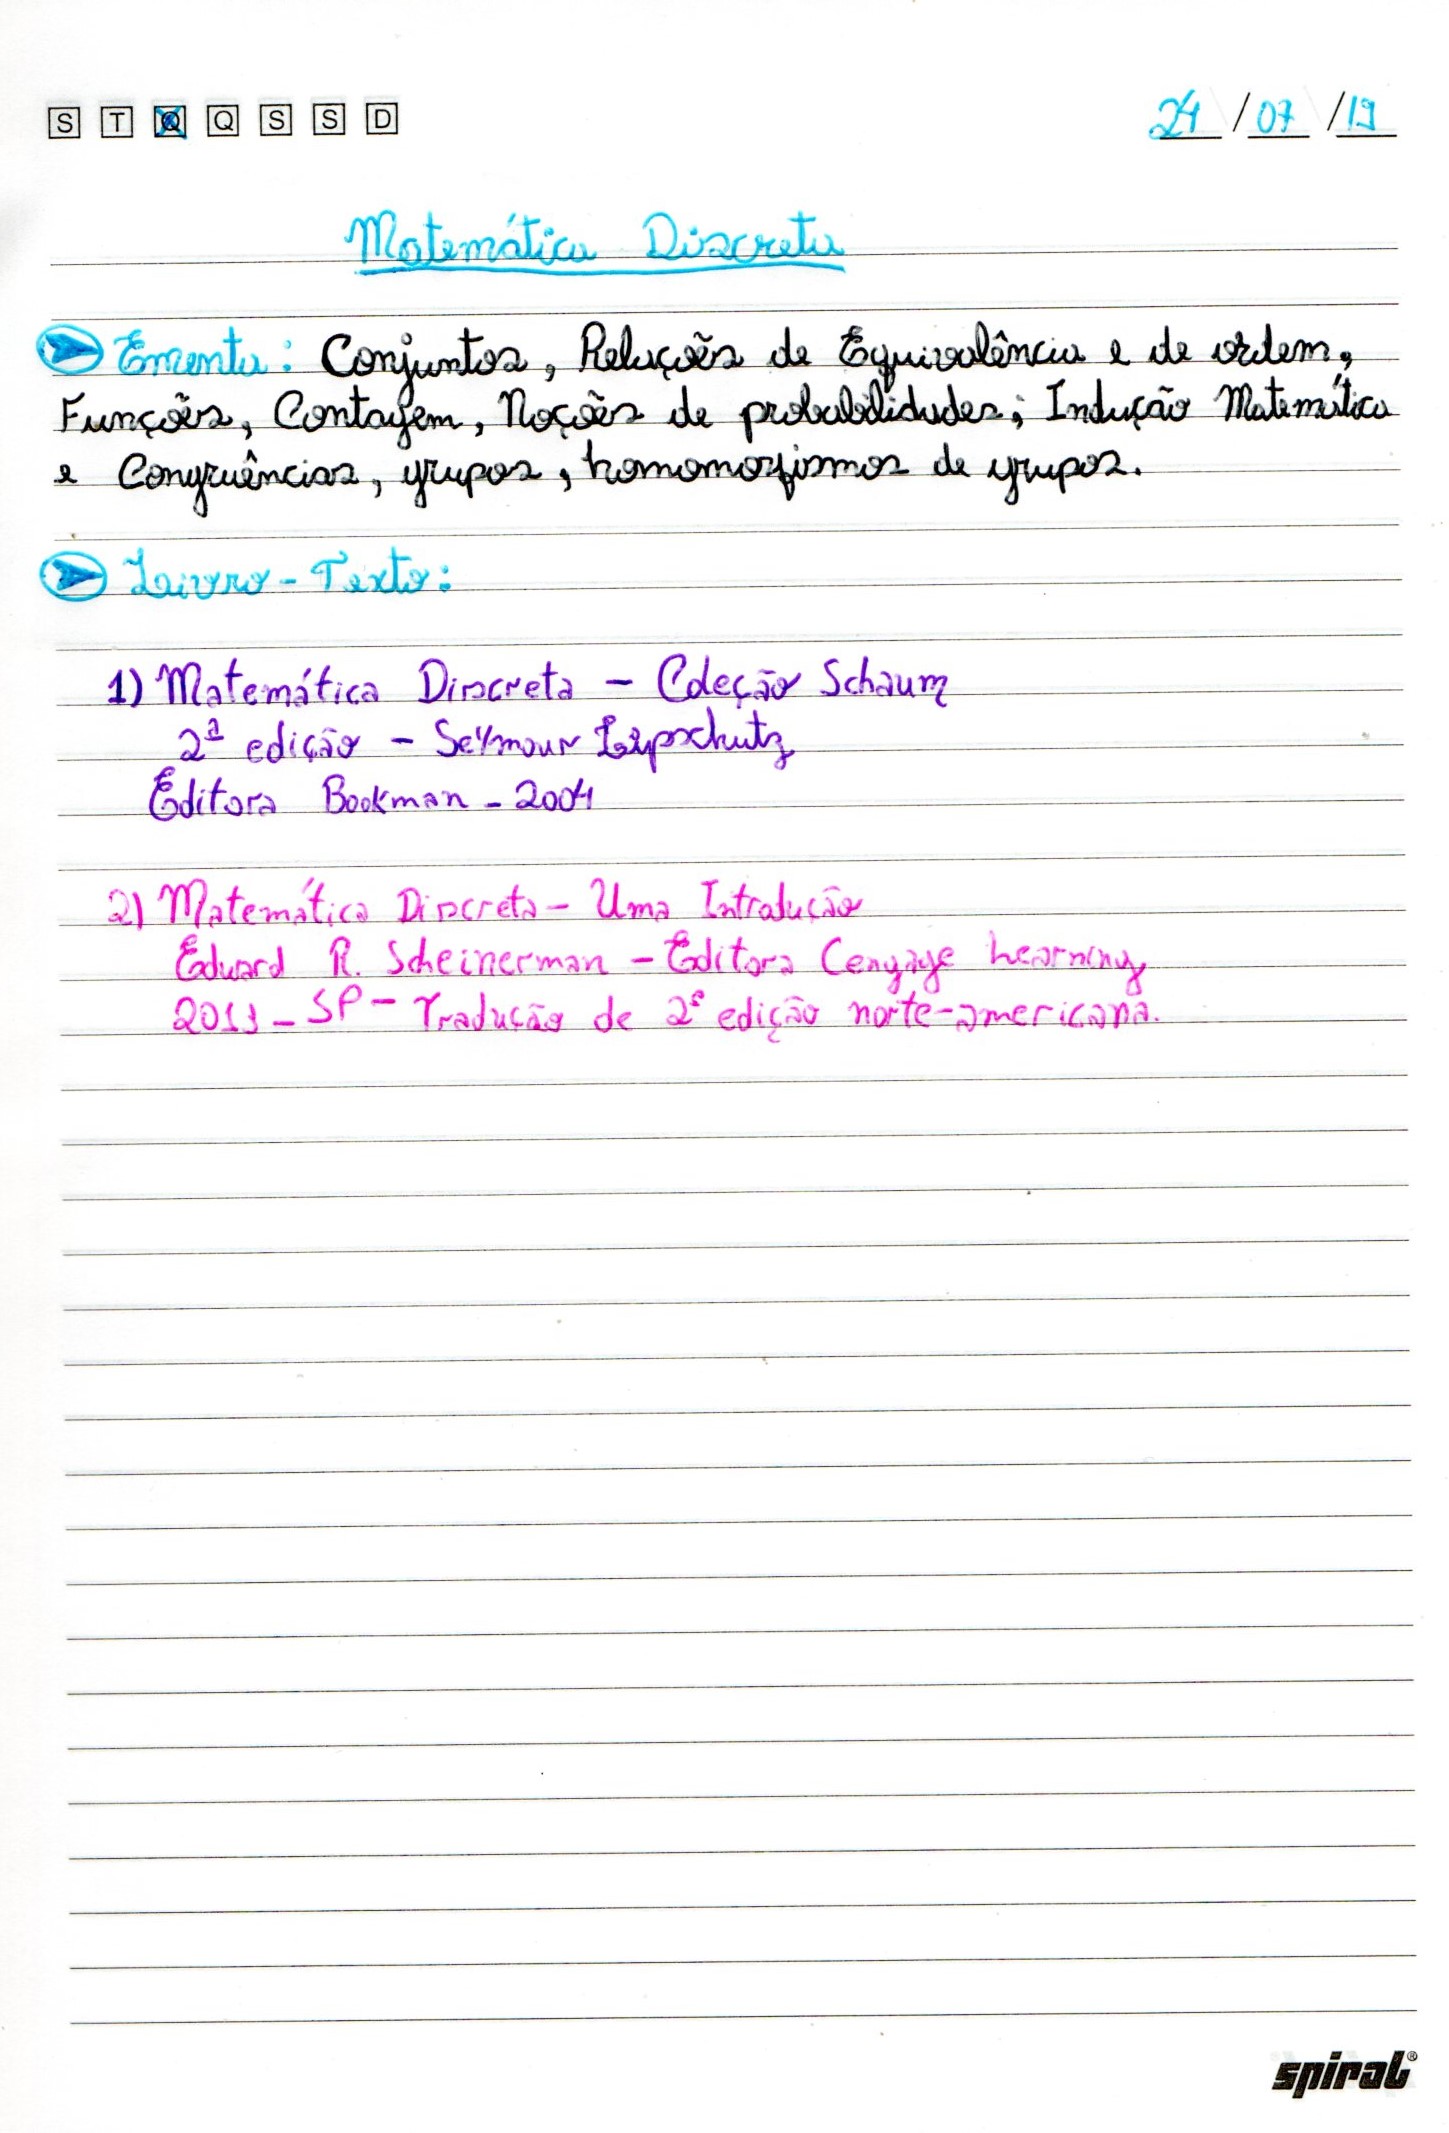 S T Q Q S S D 24/07/19
Matemática Discreta
Ementa: Conjuntos, Relações de Equivalência e de ordem,
Funções, Contagem, Noções de probabilidades; Indução Matemática
e Congruências, grupos, homomorfismos de grupos.
Livro-Texto:
1) Matemática Discreta - Coleção Schaum
2ª edição - Seymour Lipschutz
Editora Bookman - 2004
2) Matemática Discreta - Uma Introdução
Eduard R. Scheinerman - Editora Cengage Learning
2011 - SP - Tradução de 2ª edição norte-americana.
spiral®